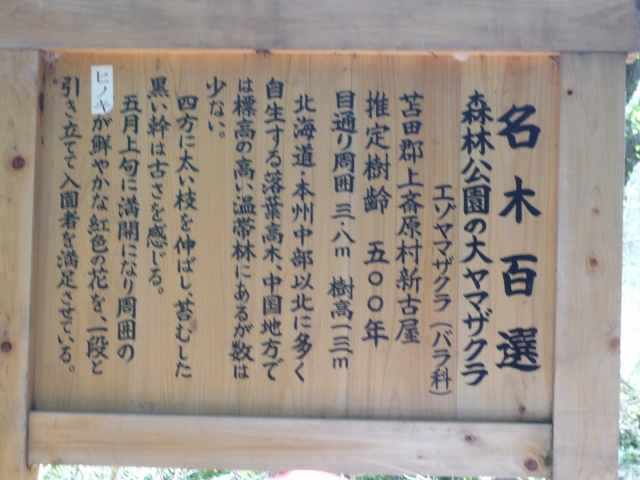 名木百選
森林公園の大ヤマザクラ
エゾヤマザクラ（バラ科）
苫田郡上斎原村新古屋
推定樹齢 五〇〇年
目通り周囲 三・八m 樹高一三m
北海道・本州中部以北に多く
自生する落葉高木、中国地方で
は標高の高い温帯林にあるが数は
少ない。
四方に太い枝を伸ばし、苔むした
黒い幹は古さを感じる。
五月上旬に満開になり周囲の
ヒノキが鮮やかな紅色の花を、一段と
引き立てて入園者を満足させている。